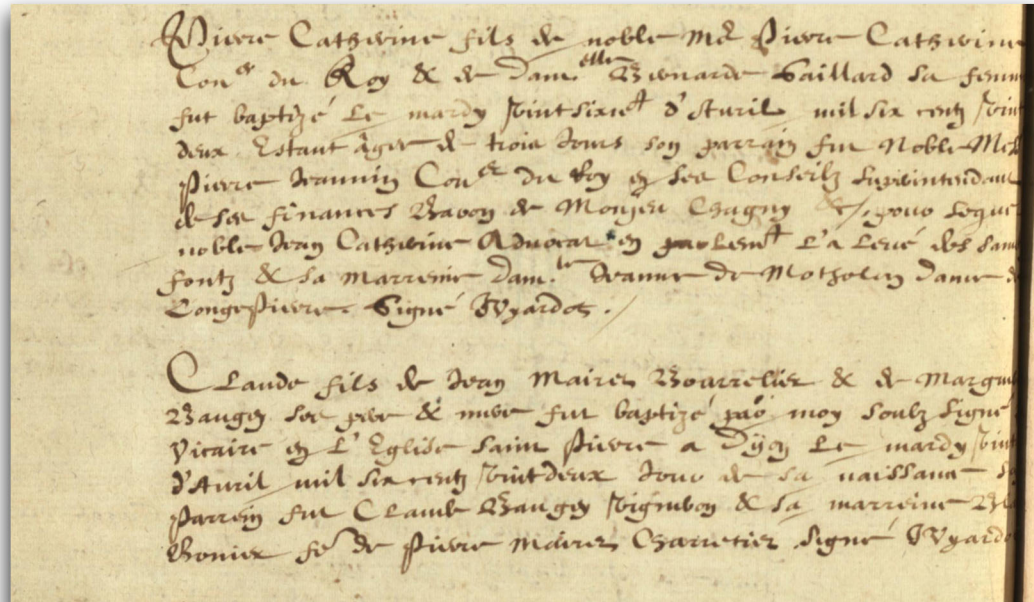 Pierre Catherine fils de noble Me Pierre Catherine
Coner du Roy & de damelle Bernarde Gaillard sa femm
fut baptizé Le mardy vintsixiet d'Auril mil six centz vint
deux Estant âgee de trois Jours son parrain fut Noble Mes
Pierre Jeannin Coner du Roy en ses Conseilz Superintendant
de ses finances Baron de Monjeu Chagny &c, pour Leque
noble Jean Catherine Aduocat en parlemt L'a Leué des sain
fontz & sa Marreine damle Jeanne de dame d
Longepierre. Signé Vyardot.
Claude fils de Jean Maires Bourrelier & de Margu
Baugey ses pere & mere fut baptizé par moy soubz signé
Vicaire en L'Eglise saint Pierre a Dijon Le mardy vint
d'Auril mil six centz vint deux Jour de sa naissance s
Parrein fut Claude Baugey vigneron & sa marreine
Bonier fe de Pierre Maires Charretier signé Vyardo